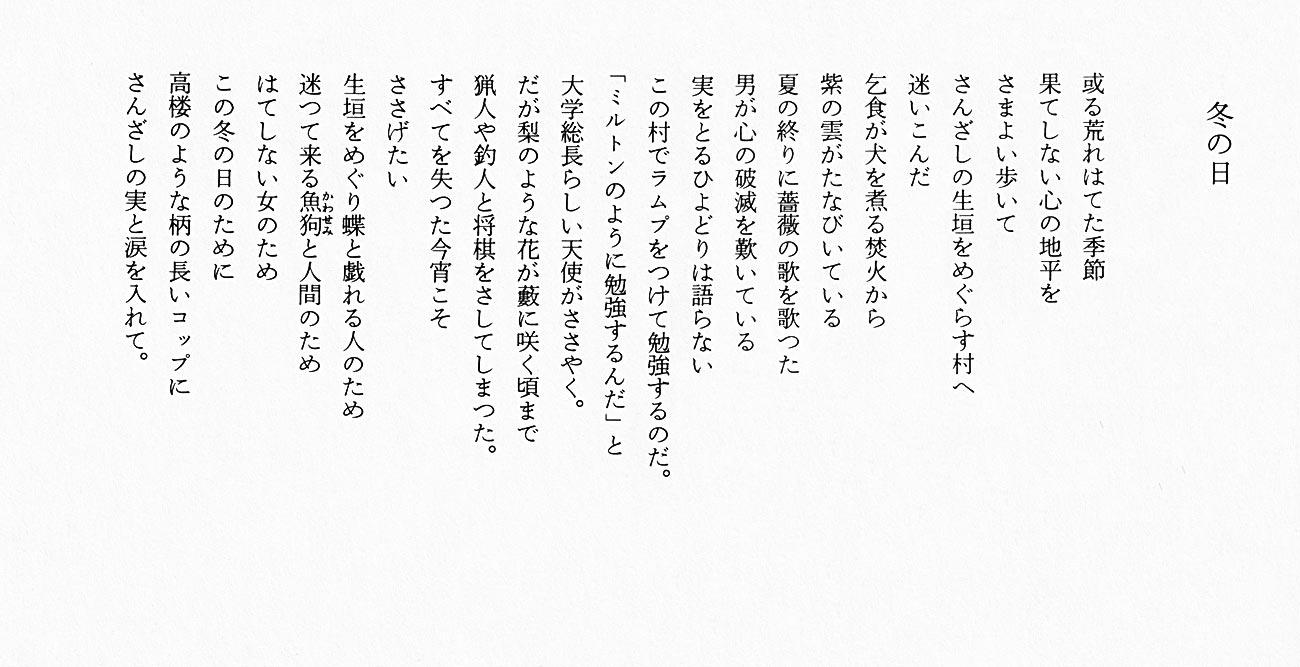 冬の日
或る荒れはてた季節
果てしない心の地平を
さまよい歩いて
さんざしの生垣をめぐらす村へ
迷いこんだ
乞食が犬を煮る焚火から
紫の雲がたなびいている
夏の終りに薔薇の歌を歌つた
男が心の破滅を歎いている
実をとるひよどりは語らない
この村でラムプをつけて勉強するのだ。
「ミルトンのように勉強するんだ」と
大学総長らしい天使がささやく。
だが梨のような花が藪に咲く頃まで
猟人や釣人と将棋をさしてしまつた。
すべてを失つた今宵こそ
ささげたい
生垣をめぐり蝶と戯れる人のため
迷つて来る魚狗と人間のため
かわせみ
はてしない女のため
この冬の日のために
高楼のような柄の長いコップに
さんざしの実と涙を入れて。